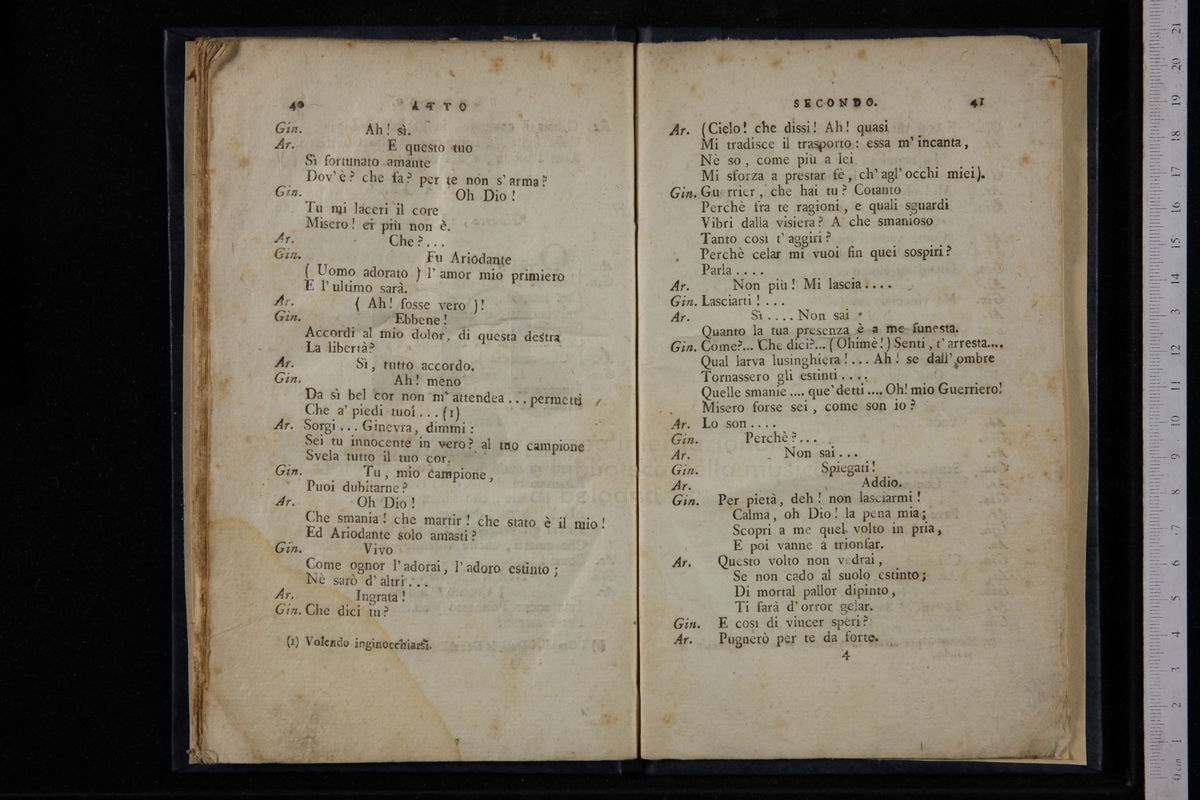 40 ATTO
Gin. Ah! sì.
Ar. E questo tuo
Sì fortunato amante
Dov'è? che fa? per te non s'arma?
Gin. Oh Dio!
Tu mi laceri il core
Misero! ei più non è.
Ar. Che?...
Gin. Fu Ariodante
( Uomo adorato ) l'amor mio primiero
E l'ultimo sarà.
Ar. ( Ah! fosse vero )!
Gin. Ebbene!
Accordi al mio dolor, di questa destra
La libertà?
Ar. Sì, tutto accordo.
Gin. Ah! meno
Da sì bel cor non m'attendea... permetti
Che a' piedi tuoi... (1)
Ar. Sorgi... Ginevra, dimmi:
Sei tu innocente in vero? al tuo campione
Svela tutto il tuo cor.
Gin. Tu, mio campione,
Puoi dubitarne?
Ar. Oh Dio!
Che smania! che martir! che stato è il mio!
Ed Ariodante solo amasti?
Gin. Vivo
Come ognor l'adorai, l'adoro estinto;
Nè sarò d'altri...
Ar. Ingrata!
Gin. Che dici tu?
(1) Volendo inginocchiarsi.
SECONDO. 41
Ar. (Cielo! che dissi! Ah! quasi
Mi tradisce il trasporto: essa m'incanta,
Nè so, come più a lei
Mi sforza a prestar fè, ch'agl'occhi miei).
Gin. Gu rrier, che hai tu? Cotanto
Perchè fra te ragioni, e quali sguardi
Vibri dalla visiera? A che smanioso
Tanto così t'aggiri?
Perchè celar mi vuoi fin quei sospiri?
Parla....
Ar. Non più! Mi lascia....
Gin. Lasciarti!...
Ar. Sì.... Non sai
Quanto la tua presenza è a me funesta.
Gin. Come?... Che dici?... (Ohimè!) Senti, t'arresta....
Qual larva lusinghiera!... Ah! se dall'ombre
Tornassero gli estinti....
Quelle smanie.... que' detti.... Oh! mio Guerriero!
Misero forse sei, come son io?
Ar. Lo son....
Gin. Perchè?...
Ar. Non sai...
Gin. Spiegati!
Ar. Addio.
Gin. Per pietà, deh! non lasciarmi!
Calma, oh Dio! la pena mia;
Scopri a me quel volto in pria,
E poi vanne a trionfar.
Ar. Questo volto non vedrai,
Se non cado al suolo estinto;
Di mortal pallor dipinto,
Ti farà d'orror gelar.
Gin. E così di vincer speri?
Ar. Pugnerò per te da forte.
4